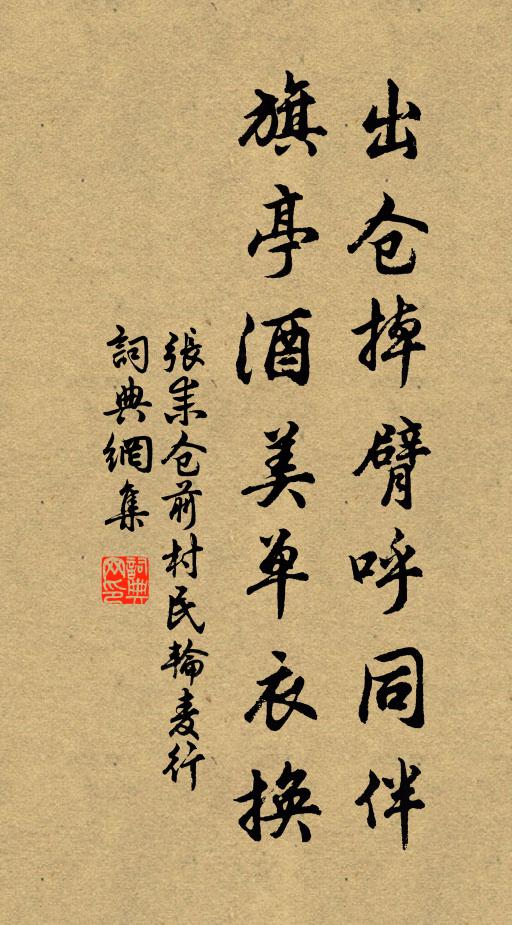 出仓掉臂呼同伴
旗亭酒美单衣换
張耒仓前村民輪麦行
詞典網集
詞典网印